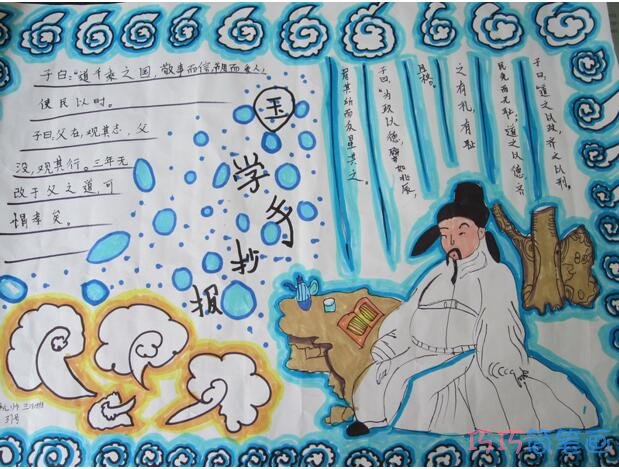 子曰:"道千乘之国,敬事而信,节用而爱人,
使民以时。
子曰:父在,观其志,父
没,观其行。三年无
改于父之道,可
谓孝矣。
国学手抄报
子曰:道之以政,齐之以刑,
民免而无耻;道之以德,齐
之有礼,有耻
且格。
子曰:"为政以德,譬如北辰,
居其所而众星共之。
31号
巧巧简笔画